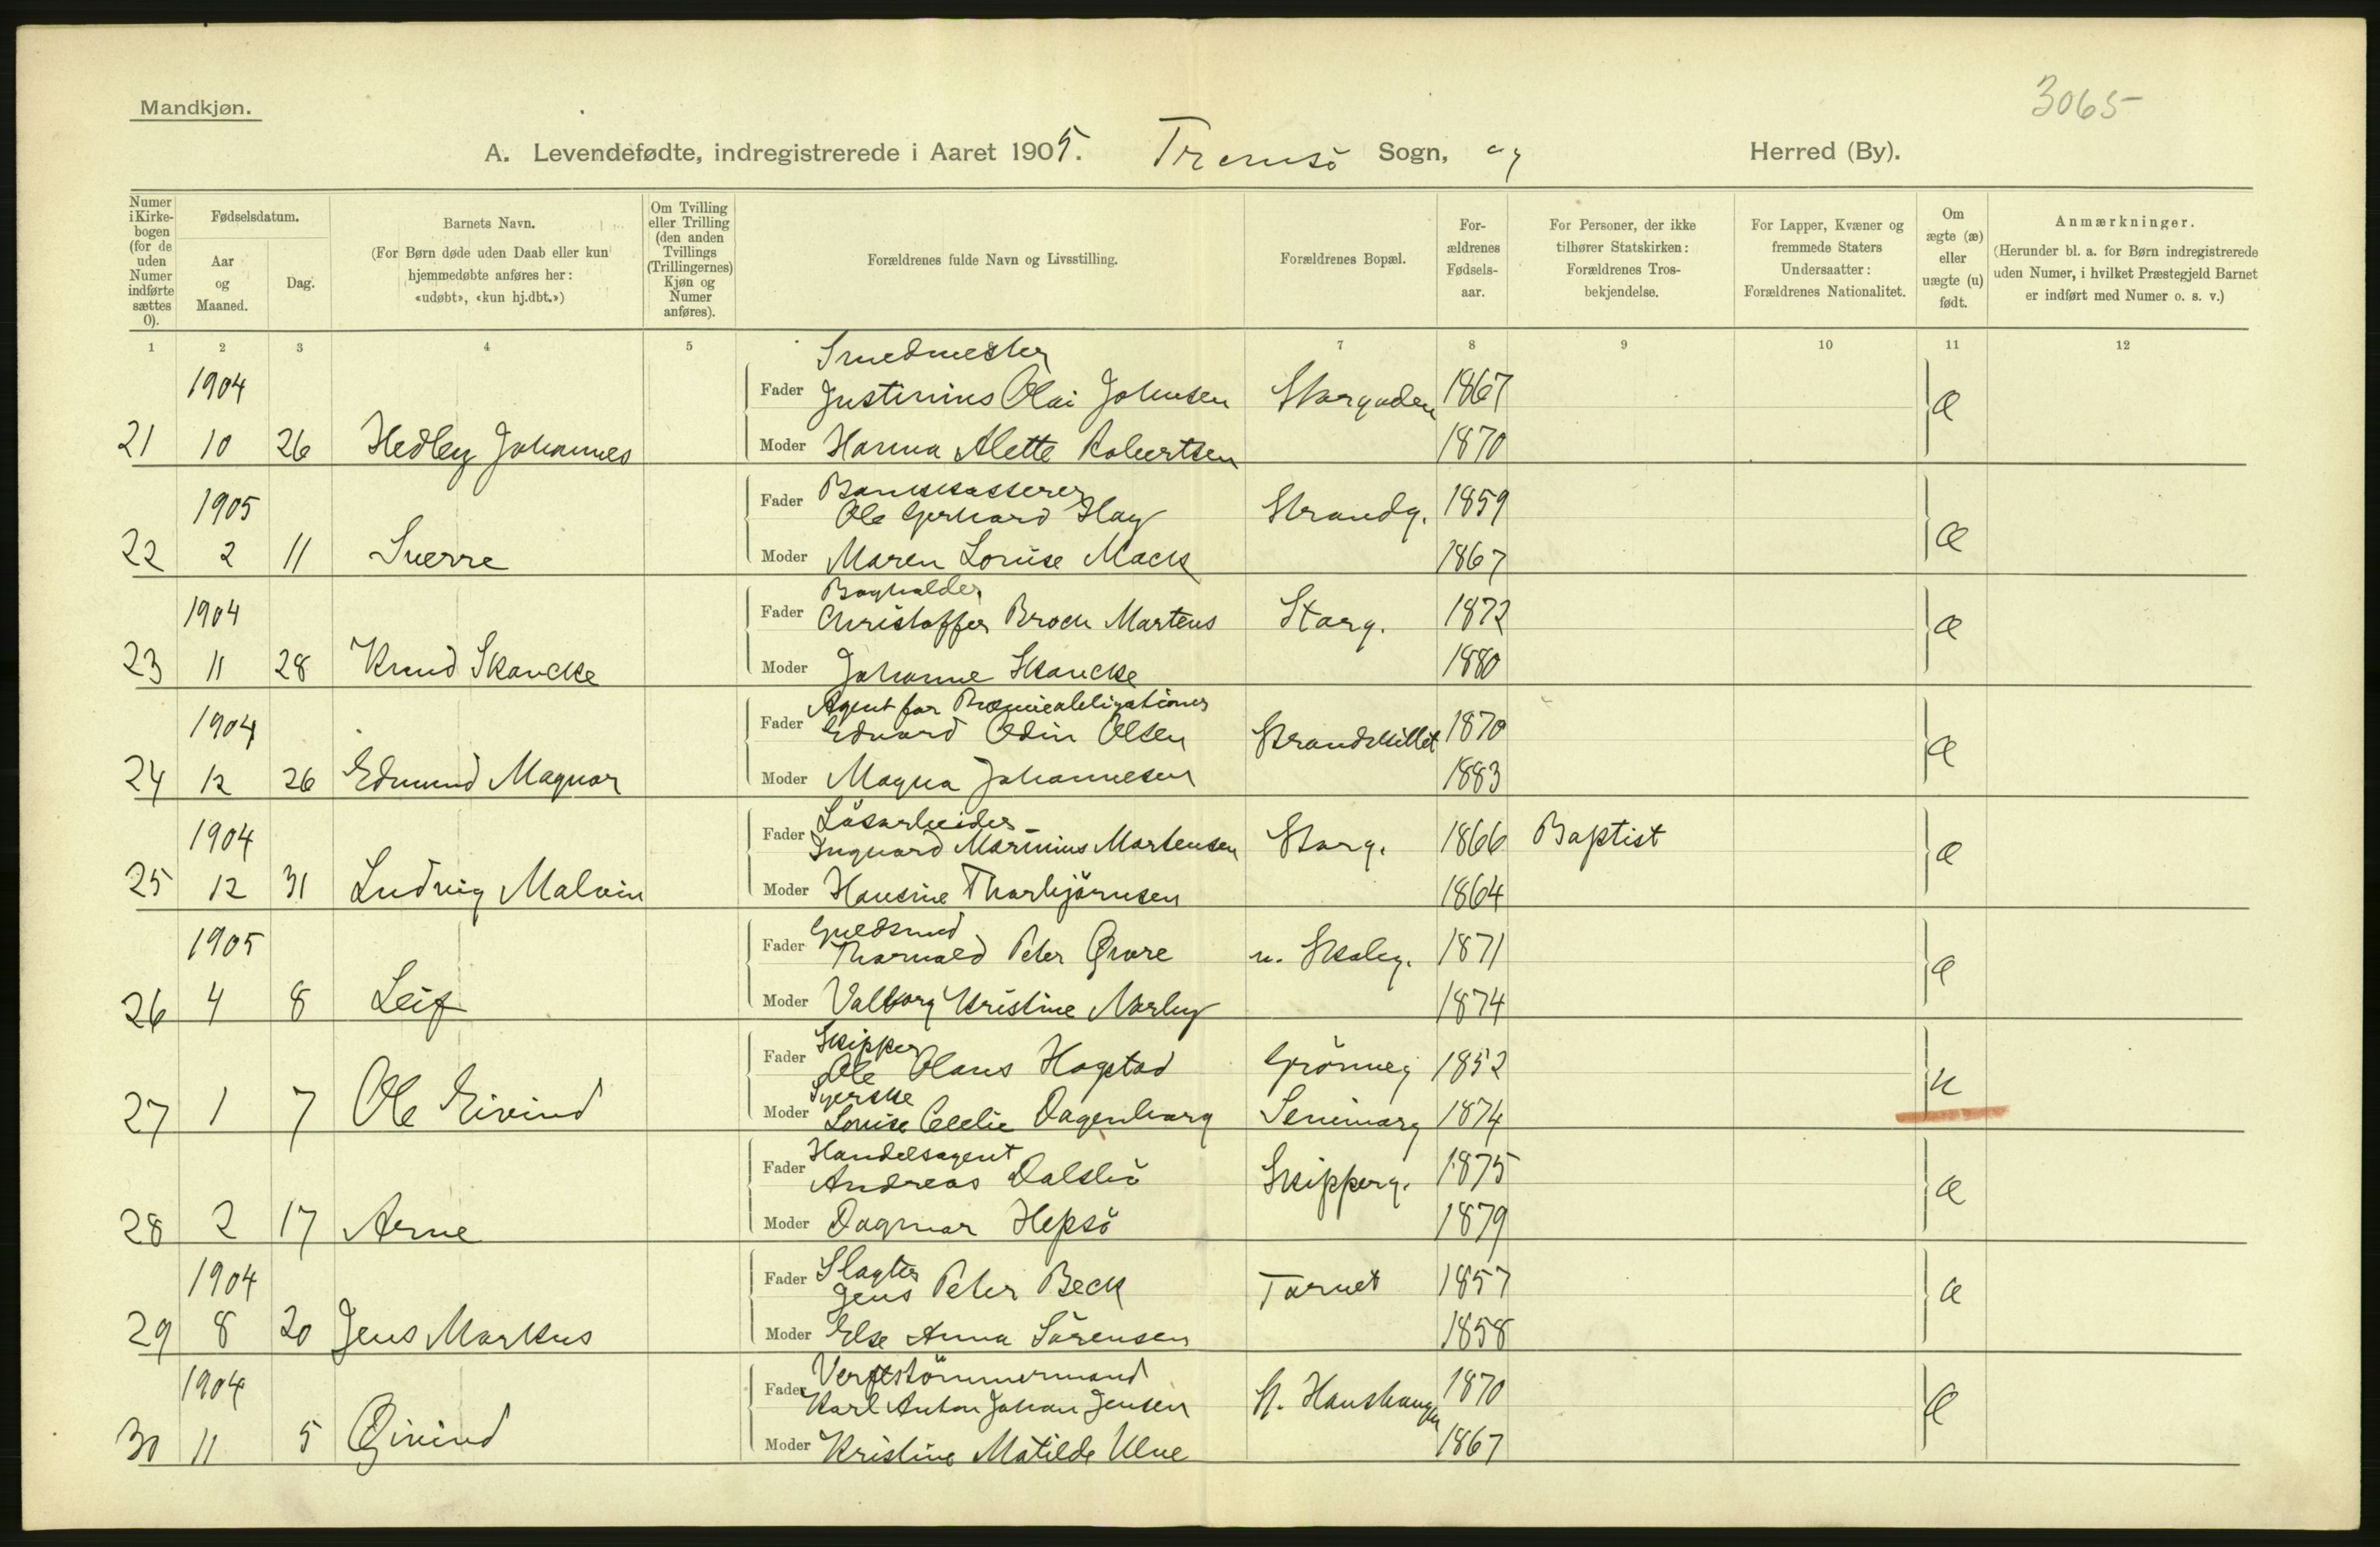 3065
Mandkjøn.
A. Levendefødte, indregistrerede i Aaret 1905. Tromsö Sogn, og Herred (By).
Numer i Kirkebogen (for de uden Numer indførte sættes 0).
Fødselsdatum.
Aar og Maaned.
Dag.
Barnets Navn.
(For Børn døde uden Daab eller kun hjemmedøbte anføres her: «udøbt», «kun hj.dbt.»)
Om Tvilling eller Trilling (den anden Tvillings (Trillingernes) Kjøn og Numer anføres).
Forældrenes fulde Navn og Livsstilling.
Forældrenes Bopæl.
Forældrenes Fødselsaar.
For Personer, der ikke tilhører Statskirken: Forældrenes Trosbekjendelse.
For Lapper, Kvæner og fremmede Staters Undersaatter: Forældrenes Nationalitet.
Om ægte (æ) eller uægte (u) født.
Anmærkninger.
(Herunder bl. a. for Børn indregistrerede uden Numer, i hvilket Præstegjeld Barnet er indført med Numer o. s. v.)
1 2 3 4 5 7 8 9 10 11 12
Smedmester
1904 Fader Justinius Olai Johnsen Storgaden 1867 æ
21 10 26 Hedley Johannes Moder Hanna Alette Robertsen 1870
Bankkasserer
1905 Fader Ole Gerhard Hay Strandg. 1859 æ
22 2 11 Sverre Moder Maren Louise Mack 1867
Bogholder
1904 Fader Christoffer Broch Martens Storg. 1872 æ
23 11 28 Knud Skancke Moder Johanne Skancke 1880
Agent for Præmieobligationer
1904 Fader Edvard Odin Olsen Strandskillet 1870 æ
24 12 26 Edmund Magnar Moder Magna Johannesen 1883
Løsarbeider
1904 Fader Ingvard Marinius Mortensen Storg. 1866 Baptist æ
25 12 31 Ludvig Malvin Moder Hansine Thorbjörnsen 1864
Guldsmed
1905 Fader Thorvald Peter Qvare n. Skoleg. 1871 æ
26 4 8 Leif Moder Valborg Kristine Norby 1874
Skipper
Fader Ole Olaus Hagstad Grönneg 1852 u
Syerske
27 1 7 Ole Eivind Moder Louise Cecelie Dagenborg Seminarg 1874
Handelsagent
Fader Andreas Dalslö Skipperg. 1875 æ
28 2 17 Arne Moder Dagmar Hepsö 1879
Slagter
1904 Fader Jens Peter Beck Tornet 1857 æ
29 8 20 Jens Markus Moder Else Anna Sörensen 1858
Verftstömmermand
1904 Fader Karl Anton Johan Jensen St. Hanshaugen 1870 æ
30 11 5 Øivind Moder Kristine Matilde Ulve 1867